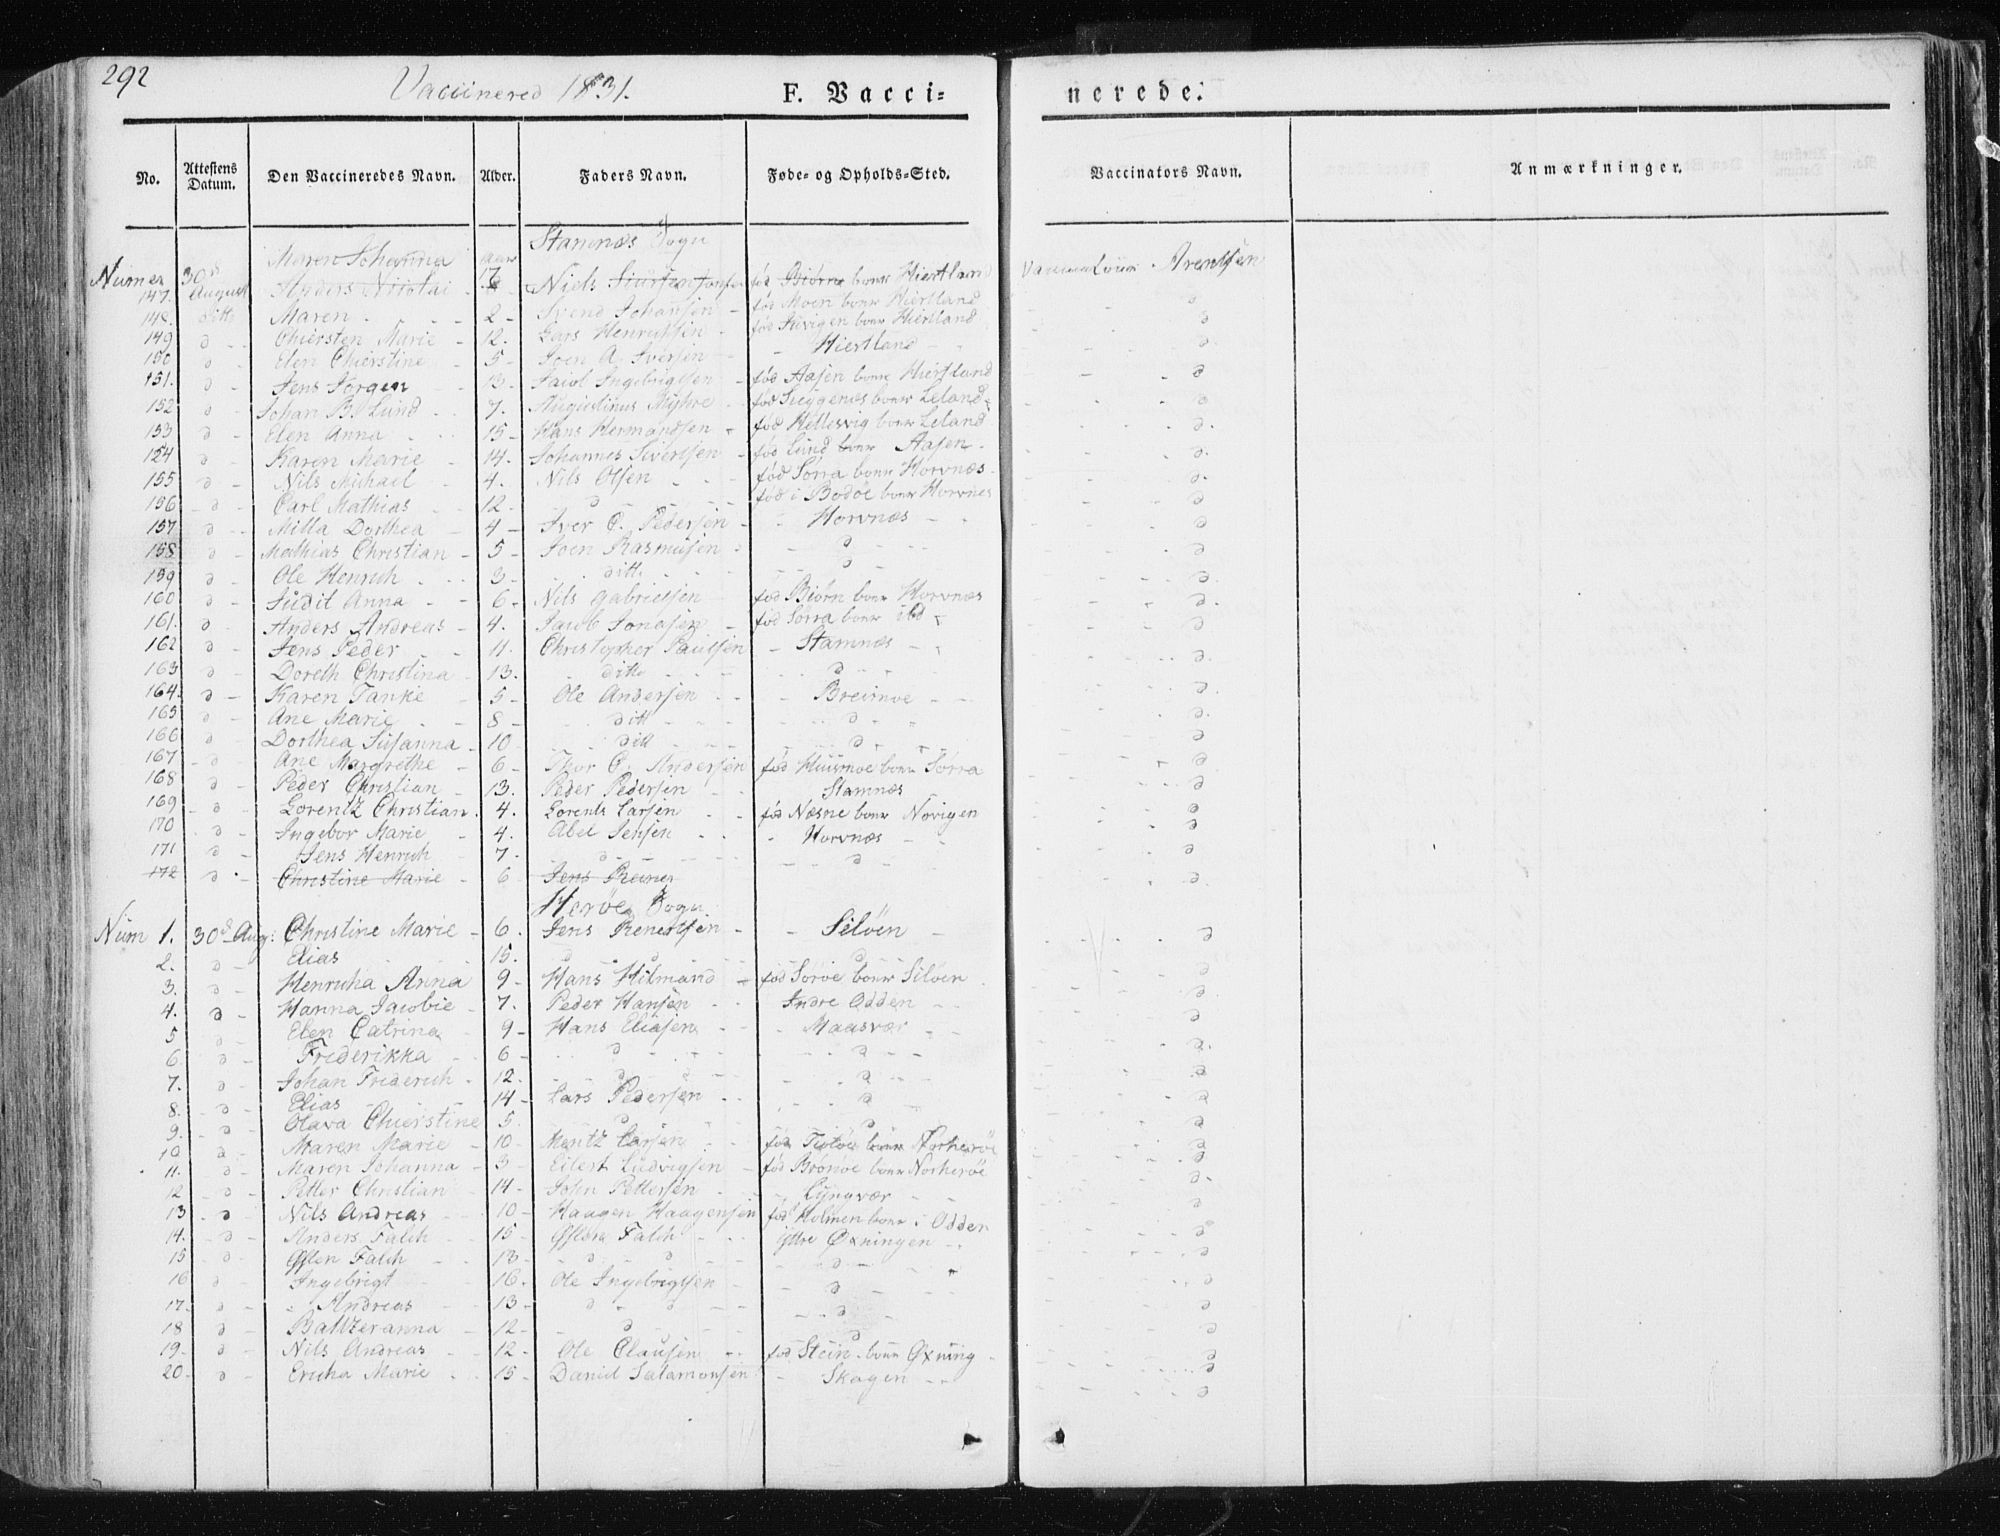 292
Vaccinered 1831.
F. Vacci=
nerede.
No. Attestens Datum. Den Vaccineredes Navn. Alder. Faders Navn. Føde- og Opholds-Sted. Vaccinators Navn. Anmærkninger.
Stamnæs Sogn
Maren Johanna aar
Numer 147. 30 August Anders Nicolai 6 Niels fød Biørn boer Hiertland Arentsen
148. ditto Maren 2 Svend Johansen fød Moen boer Hiertland
149 d Chiersten Marie 12. Lars Henrichsen fød boer Hiertland d
150 d Elen Chierstine 5 Joen A. Iversen Hiertland d
151. d Jens Jørgen 13. Jacob Ingebrigtsen fød Aasen boer Hiertland d
152 d Johan B. Lund 7. Augustinus Myhre fød boer Leland d
153 d Elen Anna 15 Hans Hermandsen fød Hellesvig boer Leland d
154 d Karen Marie 14. Johannes Sivertsen fød Lund boer Aasen d
155 d Nils Michael 4. Nils Olsen fød Sørra boer Horvnæs d
156 d Carl Mathias 12 d fød i Bodøe boer Horvnes d
157 d Milla Dorthea 4 Iver C. Pedersen Horvnæs d
158 d Mathias Christian 5 Joen Rasmusen d d
159 d Ole Henrich 3 ditto d d
160 d Judit Anna 6 Nils Gabrielsen fød Biørn boer Horvnæs d
161. d Anders Andreas 4. Jacob Jonasen fød Sørra boer ibd d
162 d Jens Peder 11. Christopher Paulsen Stamnæs d
163 d Doreth Christina 13. ditto d d
164. d Karen Tanke 5 Ole Andersen Breimoe d
165 d Ane Marie 8 ditt d d
166 d Dorthea Susanna 10 ditt d d
167 d Ane Margrethe 6 Thor C. Andersen fød Huusmoe boer Sørra d
168 d Peder Christian 13. Peder Pedersen Stamnæs d
169 d Lorentz Christian 4. Lorents Larsen fød Næsne boer Norvigen d
170 d Ingebor Marie 4. Abel Jensen Horvnæs d
171 d Jens Henrich 7. d d d
172 d Christine Marie 6 Jens d
Herøe Sogn
Num 1. 30 Aug: Christine Marie 6. Jens Renertsen Siløen d
2. d Elias 15. d d d
3. d Henricha Anna 9 Hans Hilmand fød Sørøe boer Siløen d
4. d Hanna Jacobie 7. Peder Hansen Indre Odden d
5 d Elen Catrina 9 Hans Eliasen Maasvær d
6. d Friderikka 6 d d d
7. d Johan Friderich 12. d d d
8. d Elias 14 Lars Pedersen d d
9. d Olava Chierstine 5. d d d
10 d Maren Marie 10 Mentz Larsen fød Tiøtøe boer Norherøe d
11. d Maren Johanna 3 Eilert Ludvigsen fød Brønøe boer Norherøe d
12 d Petter Christian 14 John Pettersen Lyngvær d
13 d Nils Andreas 10 Haagen Haagensen fød Holmen boer i Odden d
14. d Anders Falch 15 Falch Yttre Øxningen d
15 d Falch 13 d d d
16 d Ingebrigt 16. Ole Ingebrigtsen d d
17. d Andreas 13 d d d
18 d Baltzeranna 12 d d d
19. d Nils Andreas 12 Ole Clausen fød Stein boer Øxning d
20. d Ericha Marie 15 Daniel Salamonsen Skagen d